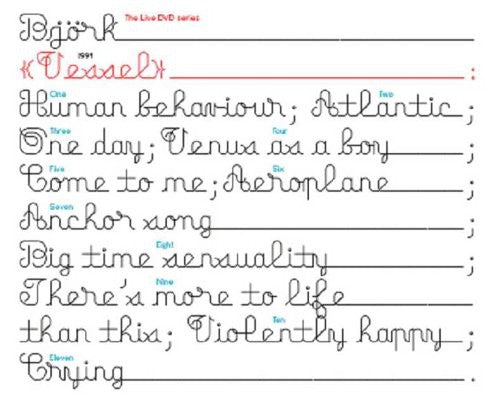 Björk The Live DVD series
1994
«Vessel» :
One Two
Human behaviour; Atlantic ;
Three Four
One day; Venus as a boy ;
Five Six
Come to me; Aeroplane ;
Seven
Anchor song ;
Eight
Big time sensuality ;
Nine
There's more to life
Ten
than this; Violently happy ;
Eleven
Crying .